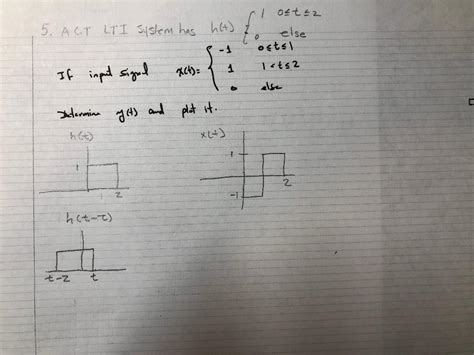 5. A CT LTI System has h(t) { 1 0≤t≤2
0 else
If input signal x(t)= { -1 0≤t≤1
1 1<t≤2
0 else
Determine y(t) and plot it.
h(t) x(t)
1 1
2 2
-1
h(t-τ)
t-2 t